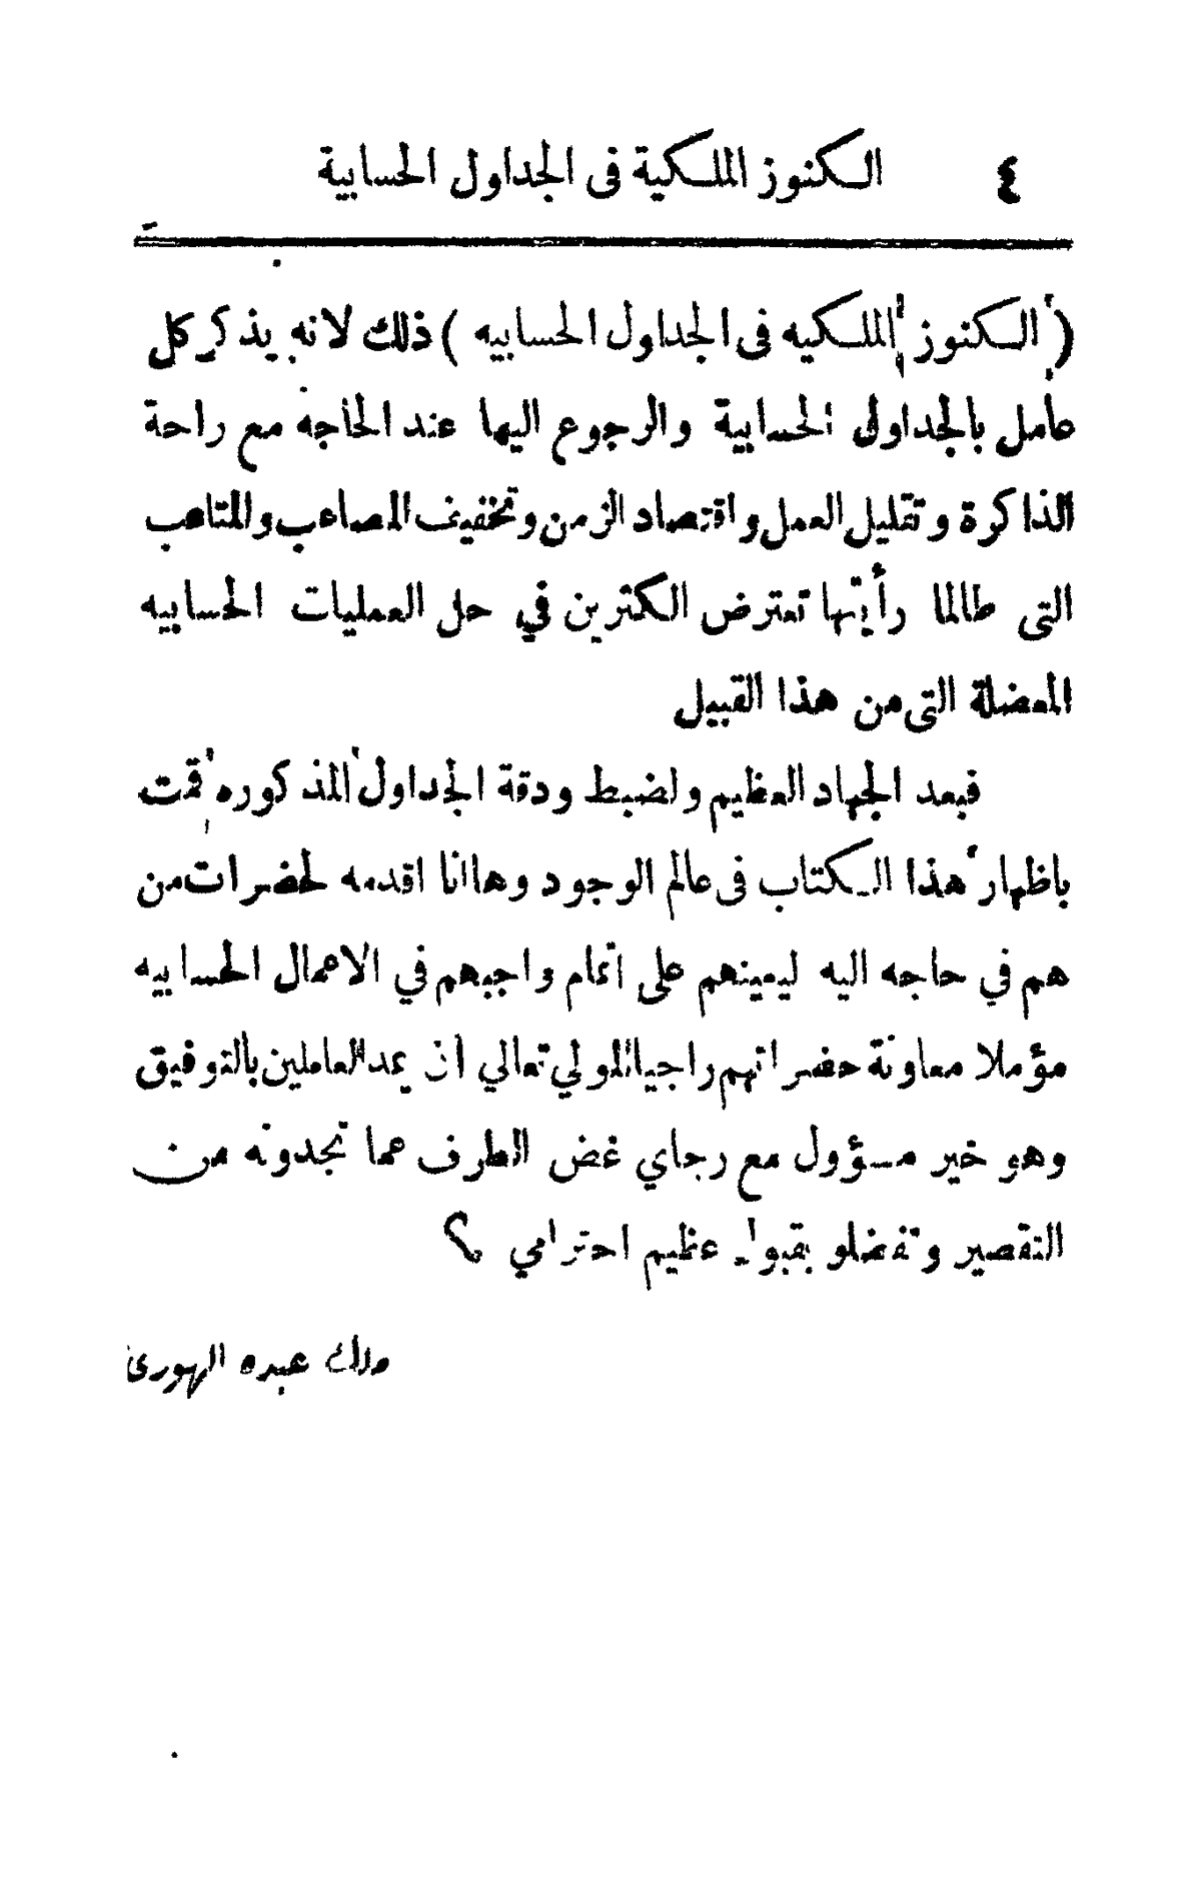 ٤ الكنوز الملكية فى الجداول الحسابية
( الكنوز الملكيه فى الجداول الحسابيه ) ذلك لانه يذكر كل
عامل بالجداول الحسابية والرجوع اليها عند الحاجه مع راحة
الذاكرة وتقليل العمل واقتصاد الزمن وتخفيف المصاعب والمتاعب
التى طالما رأيتها تعترض الكثرين في حل العمليات الحسابيه
المعضلة التى من هذا القبيل
فبعد الجهاد العظيم ولضبط ودقة الجداول المذكوره قمت
باظهار هذا الكتاب فى عالم الوجود وهاانا اقدمه لحضرات من
هم في حاجه اليه ليعينهم على اتمام واجبهم في الاعمال الحسابيه
مؤملا معاونة حضراتهم راجيا المولي تعالي ان يمد العاملين بالتوفيق
وهو خير مسؤول مع رجاي غض الطرف عما تجدونه من
التقصير وتفضلو بقبول عظيم احترامي ؟
ملك عبده الهورى